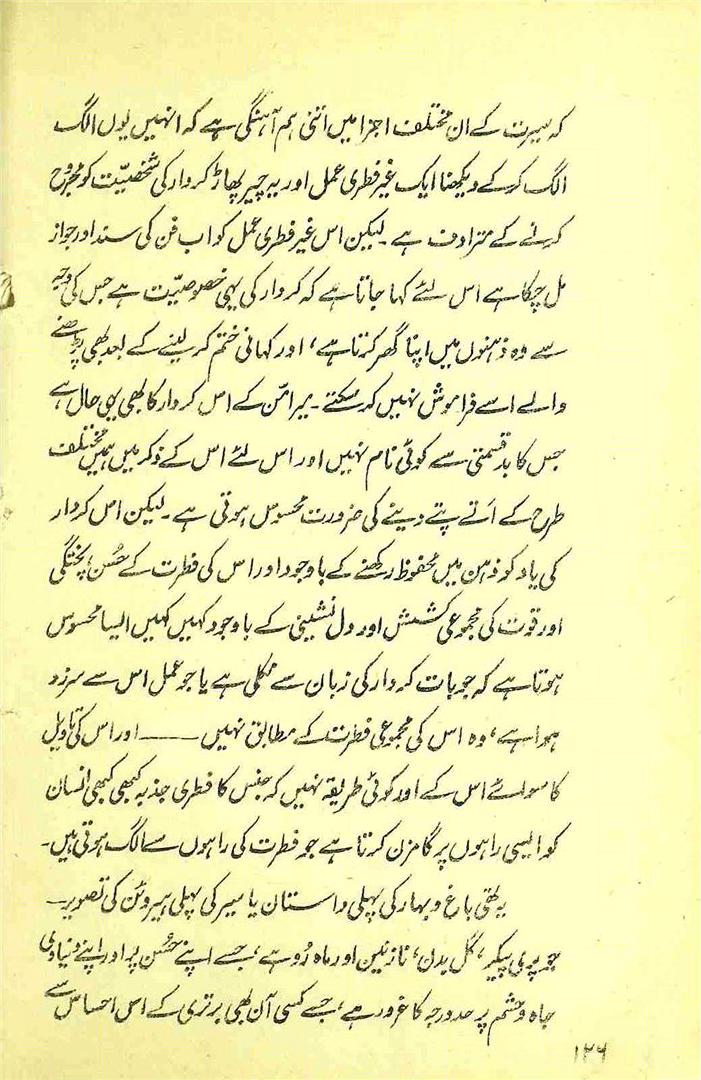 کہ سیرت کے ان مختلف اجزا میں اتنی ہم آہنگی ہے کہ انہیں یوں الگ
الگ کرکے دیکھنا ایک غیر فطری عمل اور یہ چیر پھاڑ کردار کی شخصیّت کو مجروح
کرنے کے مترادف ہے۔ لیکن اس غیر فطری عمل کو اب فن کی سند اور جواز
مل چکا ہے اس لئے کہا جاتا ہے کہ کردار کی یہی خصوصیّت ہے جس کی وجہ
سے وہ ذہنوں میں اپنا گھر کرتا ہے، اور کہانی ختم کر لینے کے بعد بھی پڑھنے
والے اسے فراموش نہیں کر سکتے۔ میرامّن کے اس کردار کا بھی یہی حال ہے
جس کا بدقسمتی سے کوئی نام نہیں اور اس لئے اس کے ذکر میں ہمیں مختلف
طرح کے اَتے پتے دینے کی ضرورت محسوس ہوتی ہے۔ لیکن اس کردار
کی یاد کو ذہن میں محفوظ رکھنے کے باوجود اور اس کی فطرت کے حُسن، پختگی
اور قوت کی مجموعی کشش اور دل نشینی کے باوجود کہیں کہیں ایسا محسوس
ہوتا ہے کہ جو بات کردار کی زبان سے نکلی ہے یا جو عمل اس سے سرزد
ہوا ہے، وہ اس کی مجموعی فطرت کے مطابق نہیں —— اور اس کی تاویل
کا سوائے اس کے اور کوئی طریقہ نہیں کہ جنس کا فطری جذبہ کبھی کبھی انسان
کو ایسی راہوں پر گامزن کرتا ہے جو فطرت کی راہوں سے الگ ہوتی ہیں۔
یہ تھی باغ و بہار کی پہلی داستان یا سیر کی پہلی ہیروئن کی تصویر۔
جو پری پیکر، گل بدن، نازنین اور ماہ رُو ہے، جسے اپنے حُسن پر اور اپنے دنیاوی
جاہ و حشم پر حد درجہ کا غرور ہے، جسے کسی آن بھی برتری کے اس احساس سے
۱۲۶